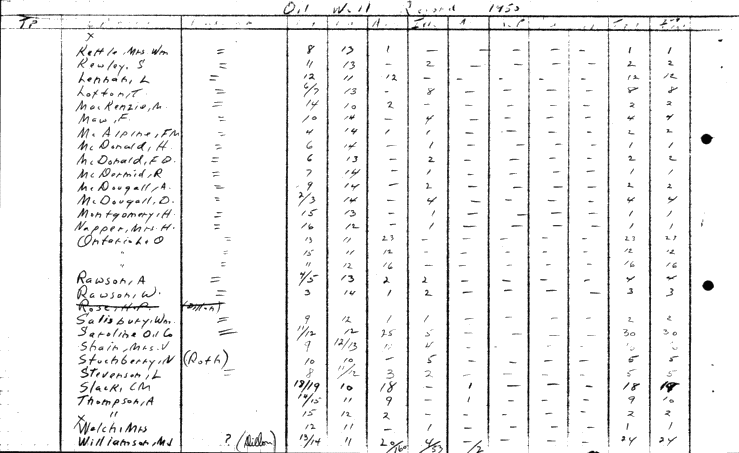 Oil Well Record 1953
TP
x
Kettle, Mrs Wm = 8 13 1 – – – – – 1 1
Rowley, S = 11 13 – 2 – – – – 2 2
Lennan, L = 12 11 12 – – – – – 12 12
Loftan, T = 6/7 13 – 8 – – – – 8 8
MacKenzie, N. = 14 10 2 – – – – – 2 2
Maw, F. = 10 14 – 4 – – – – 4 4
McAlpine, FM = 4 14 1 1 – – – – 2 2
McDonald, H. = 6 14 – 1 – – – – 1 1
McDonald, F.D. = 6 13 – 2 – – – – 2 2
McDermid, R = 7 14 – 1 – – – – 1 1
McDougall, A. = 9 14 – 2 – – – – 2 2
McDougall, D. = 2/3 14 – 4 – – – – 4 4
Montgomery, H. = 15 13 – 1 – – – – 1 1
Napper, Mrs. H. = 16 12 – 1 – – – – 1 1
= 13 11 23 – – – – – 23 23
" = 15 11 12 – – – – – 12 12
" = 11 12 16 – – – – – 16 16
Rawson, A = 4/5 13 2 2 – – – – 4 4
Rawson, W. = 3 14 1 2 – – – – 3 3
Rose, H.P.
Salisbury, Wm. = 9 12 1 1 – – – – 2 2
Oil Co = 11/12 12 25 5 – – – – 30 30
Shain, Mrs. V = 9 12/13 4 – – – –
Stuchberry, N (Roth) 10 10 – 5 – – – – 5 5
Stevenson, L = 8 11/12 3 2 – – – – 5 5
Slack, CM 18/19 10 18 – 1 – – – 18
Thompson, A 14/15 11 9 – 1 – – – 9 10
" 15 12 2 – – – – – 2 2
x
Welch, Mrs 12 11 – 1 – – – – 1 1
Williamson, MJ ? (Dillon) 13/14 11 – – – 24 24